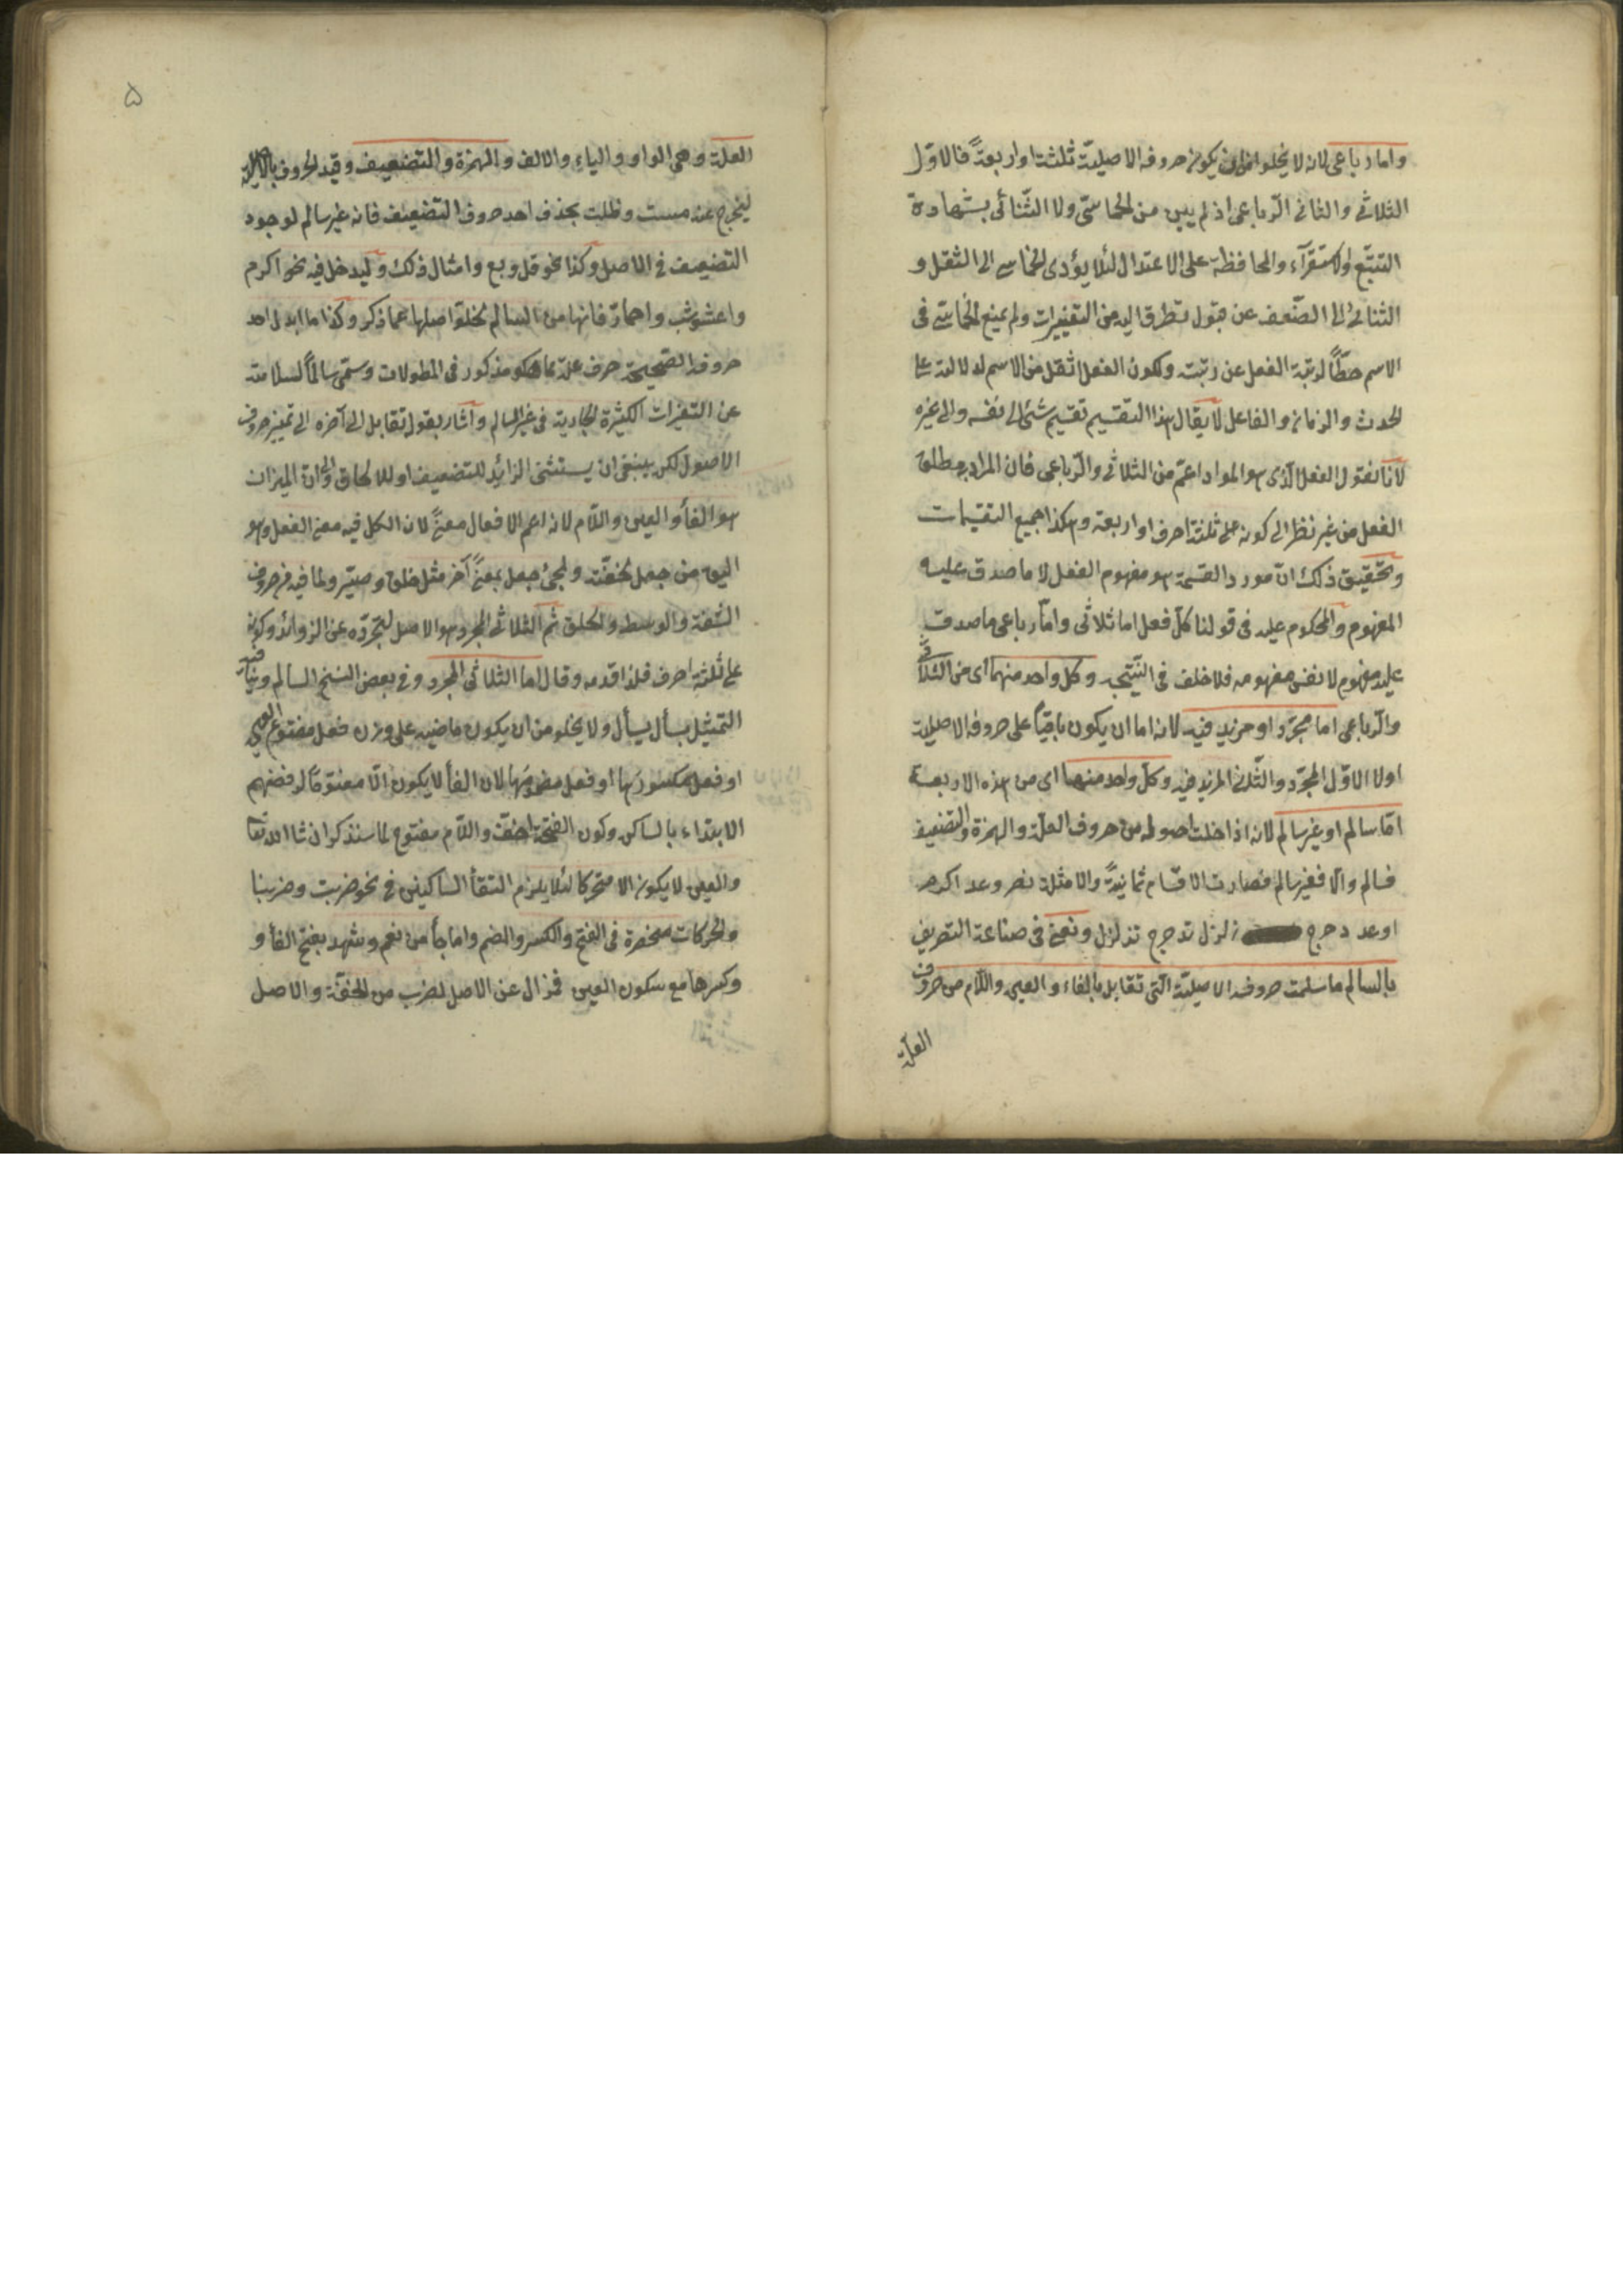 واما رباعى لانه لا يخلو اما ان يكون حروفه الاصلية ثلثة او اربعة فالاوّل
الثلاثى والثانى الرّباعى اذ لم يبين من الخماسىّ ولا الثّنائى بشهادة
التتبّع والاستقرآء والمحافظة على الاعتدال لئلا يؤدى الخماسى الى الثقل و
الثنائى الى الضّعف عن قبول تطرق اليه من التغييرات ولم يمنع الخماسى فى
الاسم حطّاً لرتبة الفعل عن رتبته ولكون الفعل اثقل من الاسم لدلالته على
الحدث والزمان والفاعل لا يقال هذا التقسيم تقسيم شئ الى نفسه والى غيره
لانا نقول الفعل الّذى هو المواد اعمّ من الثلاثى والرّباعى فان المراد به مطلق
الفعل من غير نظر الى كونه على ثلثة احرف او اربعة وهكذا جميع التقسيمات
وتحقيق ذلك انّ مورد القسمة هو مفهوم الفعل لا ما صدق عليه
المفهوم والمحكوم عليه فى قولنا كلّ فعل اما ثلاثى وامّا رباعى ما صدق
عليه مفهوم لا نفس مفهومه فلا خلف فى النتيجة وكل واحد منهما اى من الثلاثى
والرّباعى اما مجرّد او مزيد فيه لانه اما ان يكون باقياً على حروفه الاصلية
اولا الاوّل المجرّد والثّانى المزيد فيه وكلّ واحد منهما اى من هذه الاربعة
امّا سالم او غير سالم لانه اذا خلت اصوله من حروف العلّة والهمزة والتضعيف
فسالم والّا فغير سالم فصارت الاقسام ثمانية والامثلة نصر وعد اكرم
اوعد دحرج زلزل تدحرج تزلزل ونعنى فى صناعة التصريف
بالسالم ما سلمت حروفه الاصليّة الّتى تقابل بالفاء والعين واللّام من حروف
العلّة
۵
العلة وهى الواو والياء والالف والهمزة والتضعيف وقيد الحروف بالاصلية
ليخرج عنه مست وظلت بحذف احد حروف التضعيف فانه غير سالم لوجود
التضعيف فى الاصل وكذا نحو قل وبع وامثال ذلك وليدخل فيه نحو اكرم
واعشوشب واحمارّ فانها من السالم لخلوّ اصلها عما ذكر وكذا ما ابدل احد
حروفه الصّحيحة حرف علة مما هو مذكور فى المطولات وسمّى سالماً لسلامته
عن التغيرات الكثيرة الجارية فى غير السالم واشار بقوله تقابل الى آخره الى تميز حروف
الاصول لكن ينبغى ان يستثنى الزائد للتضعيف او للالحاق وانّ الميزان
هو الفأ والعين واللّام لانه اعم الافعال معنىً لان الكل فيه معنى الفعل وهو
اليق من جعل لخفّته ولمجئ جعل بمعنىً آخر مثل خلق وصيّر ولما فيه من حروف
الشّفة والوسط والحلق ثم الثلاثى المجرد هو الاصل لتجرّده عن الزوائد وكونه
على ثلثة احرف فلذا قدمه وقال اما الثلاثى المجرد وفى بعض النسخ السالم
التمثيل بسأل يسأل ولا يخلو من ان يكون ماضيه على وزن فعل مفتوح العين
او فعل مكسورها او فعل مضمومها لان الفأ لا يكون الّا مفتوحاً لرفضهم
الابتداء بالساكن وكون الفتحة اخفّ واللّام مفتوح لما سنذكر ان شاالله تعا
والعين لا يكون الا متحركا لئلا يلزم التقأ الساكنين فى نحو ضربت وضربنا
والحركات منحصرة فى الفتح والكسر والضم واما جأ من نعم وشهد بفتح الفأ و
وكسرها مع سكون العين فمزال عن الاصل لضرب من الخفّة والاصل